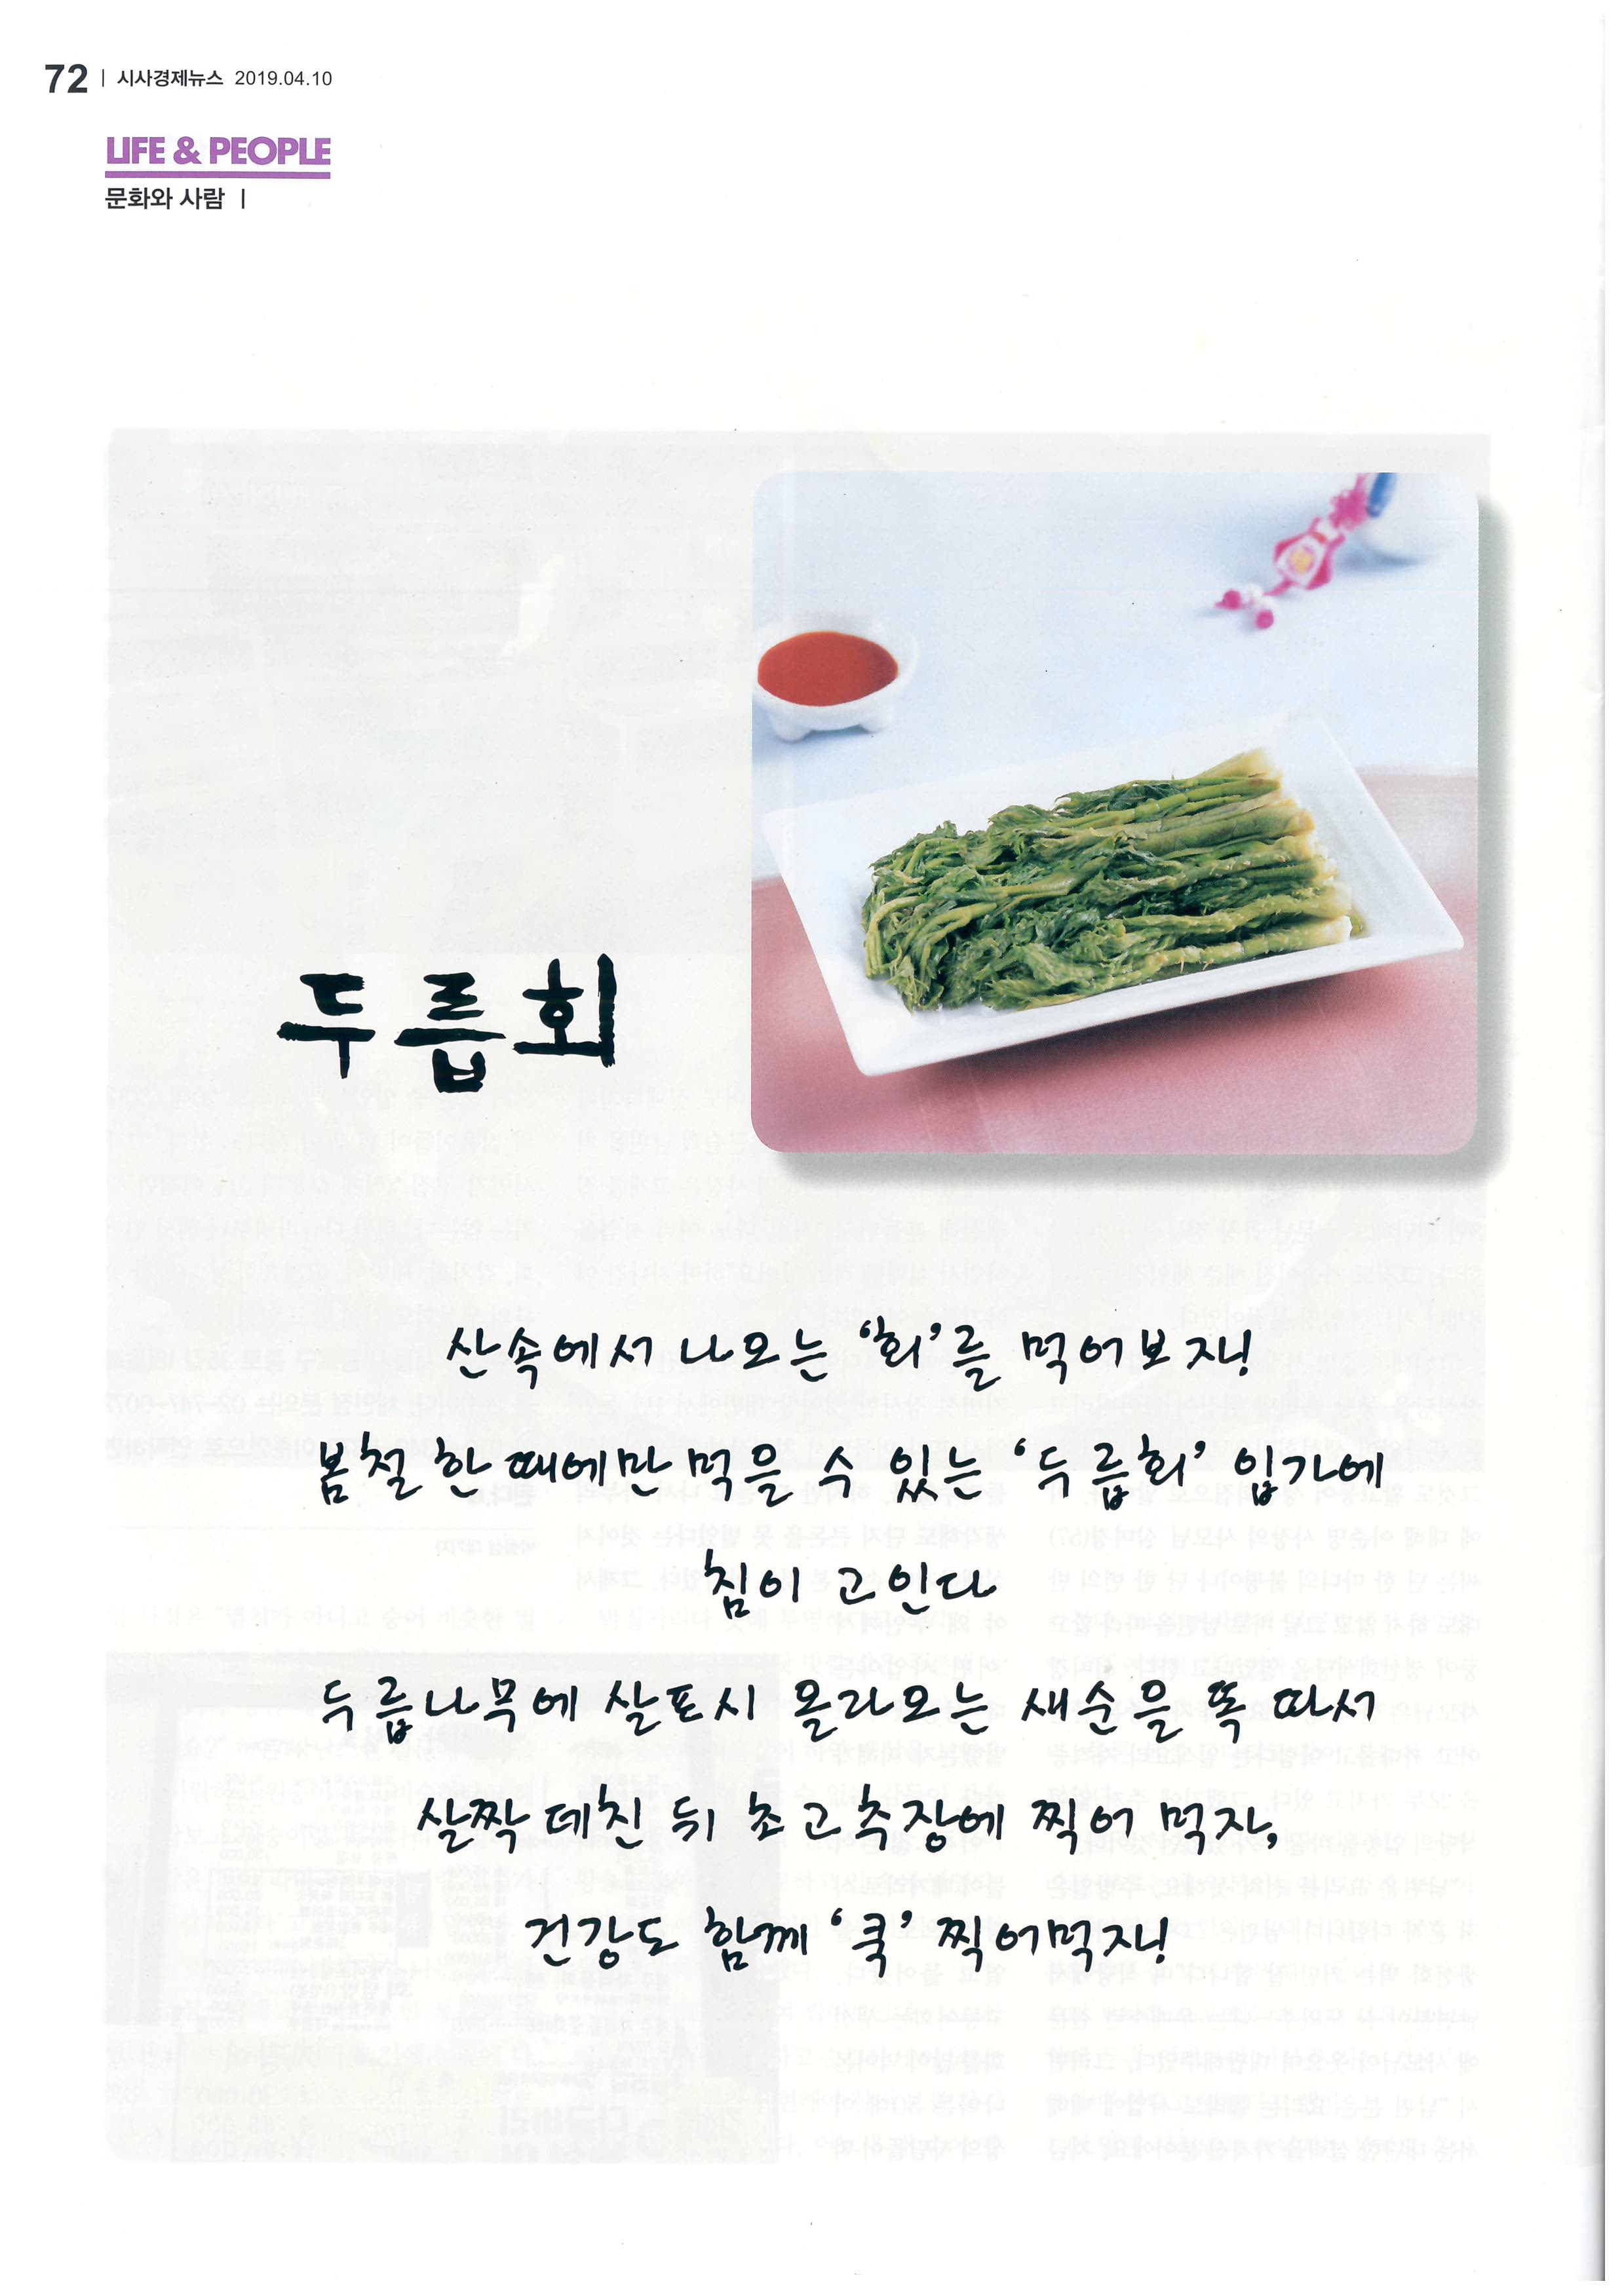 72 | 시사경제뉴스 2019.04.10
LIFE & PEOPLE
문화와 사람 |
두릅회
산속에서 나오는 '회'를 먹어보자!
봄철 한 때에만 먹을 수 있는 '두릅회' 입가에
침이 고인다
두릅나무에 살포시 올라오는 새순을 똑 따서
살짝 데친 뒤 초고추장에 찍어 먹자,
건강도 함께 '쿡' 찍어먹자!